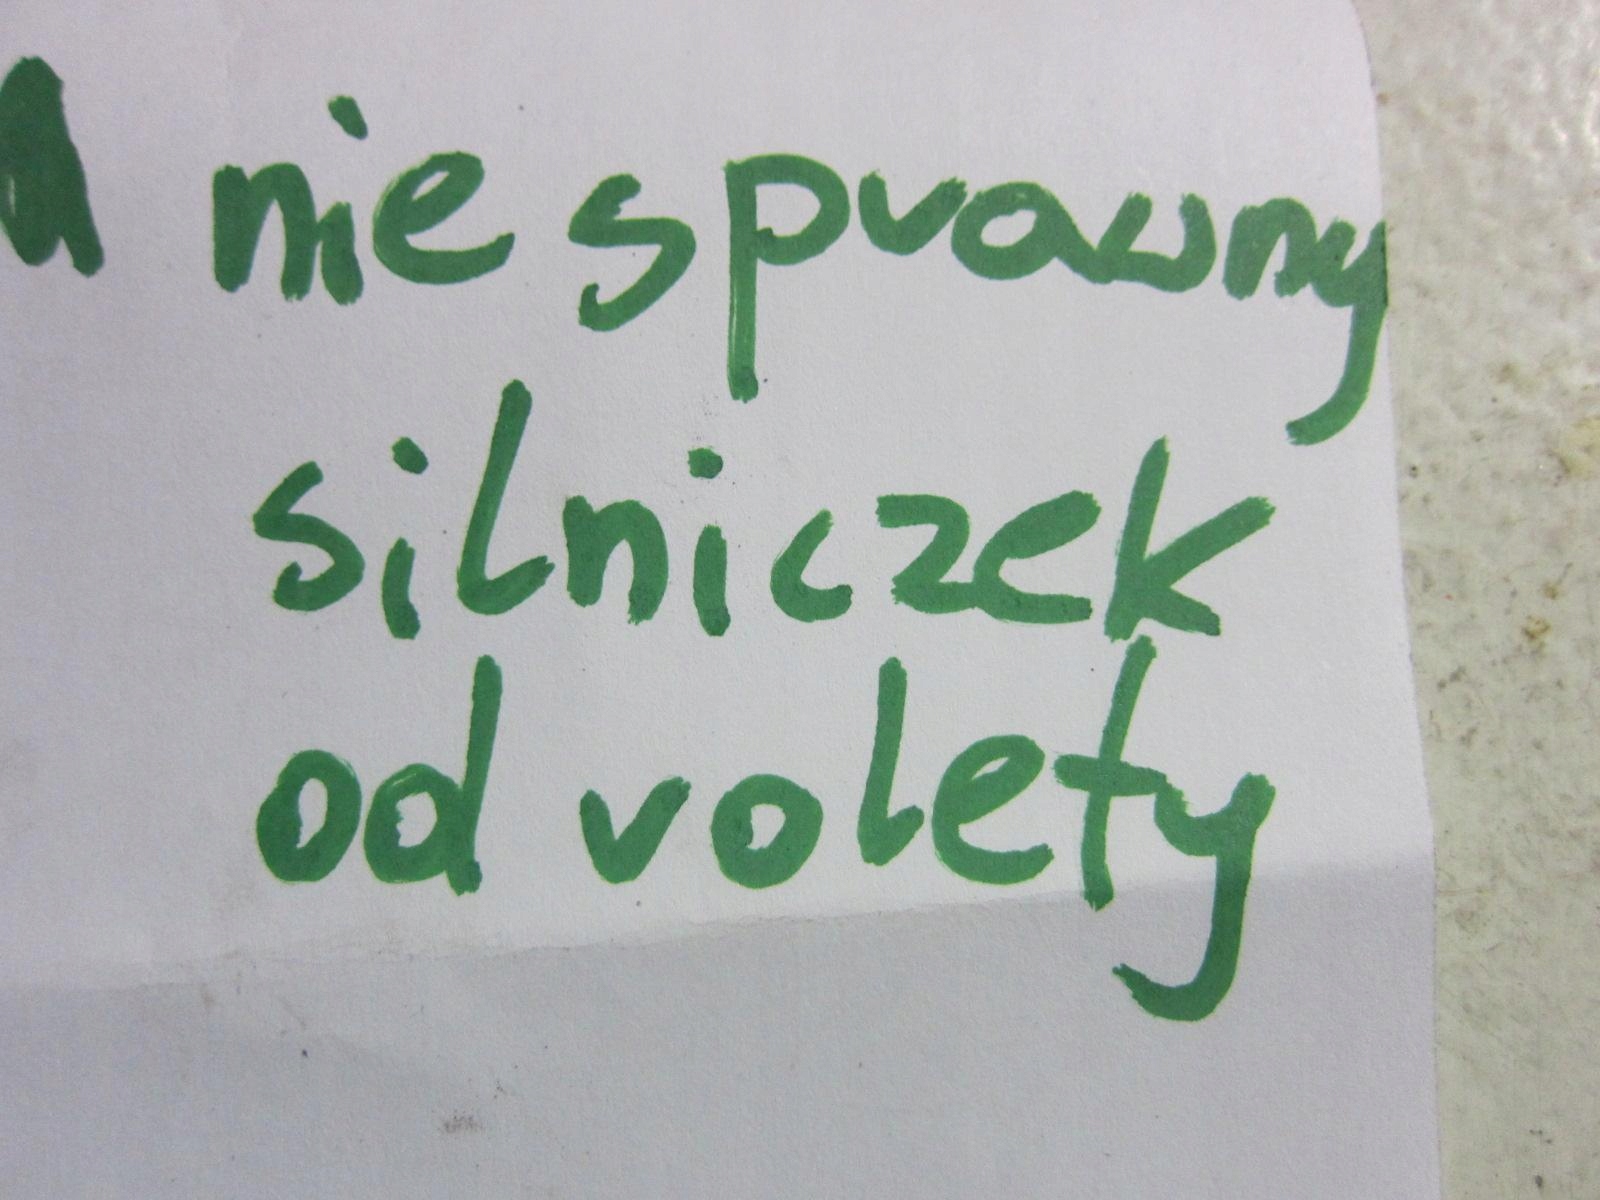 nie sprawny
silniczek
od rolety